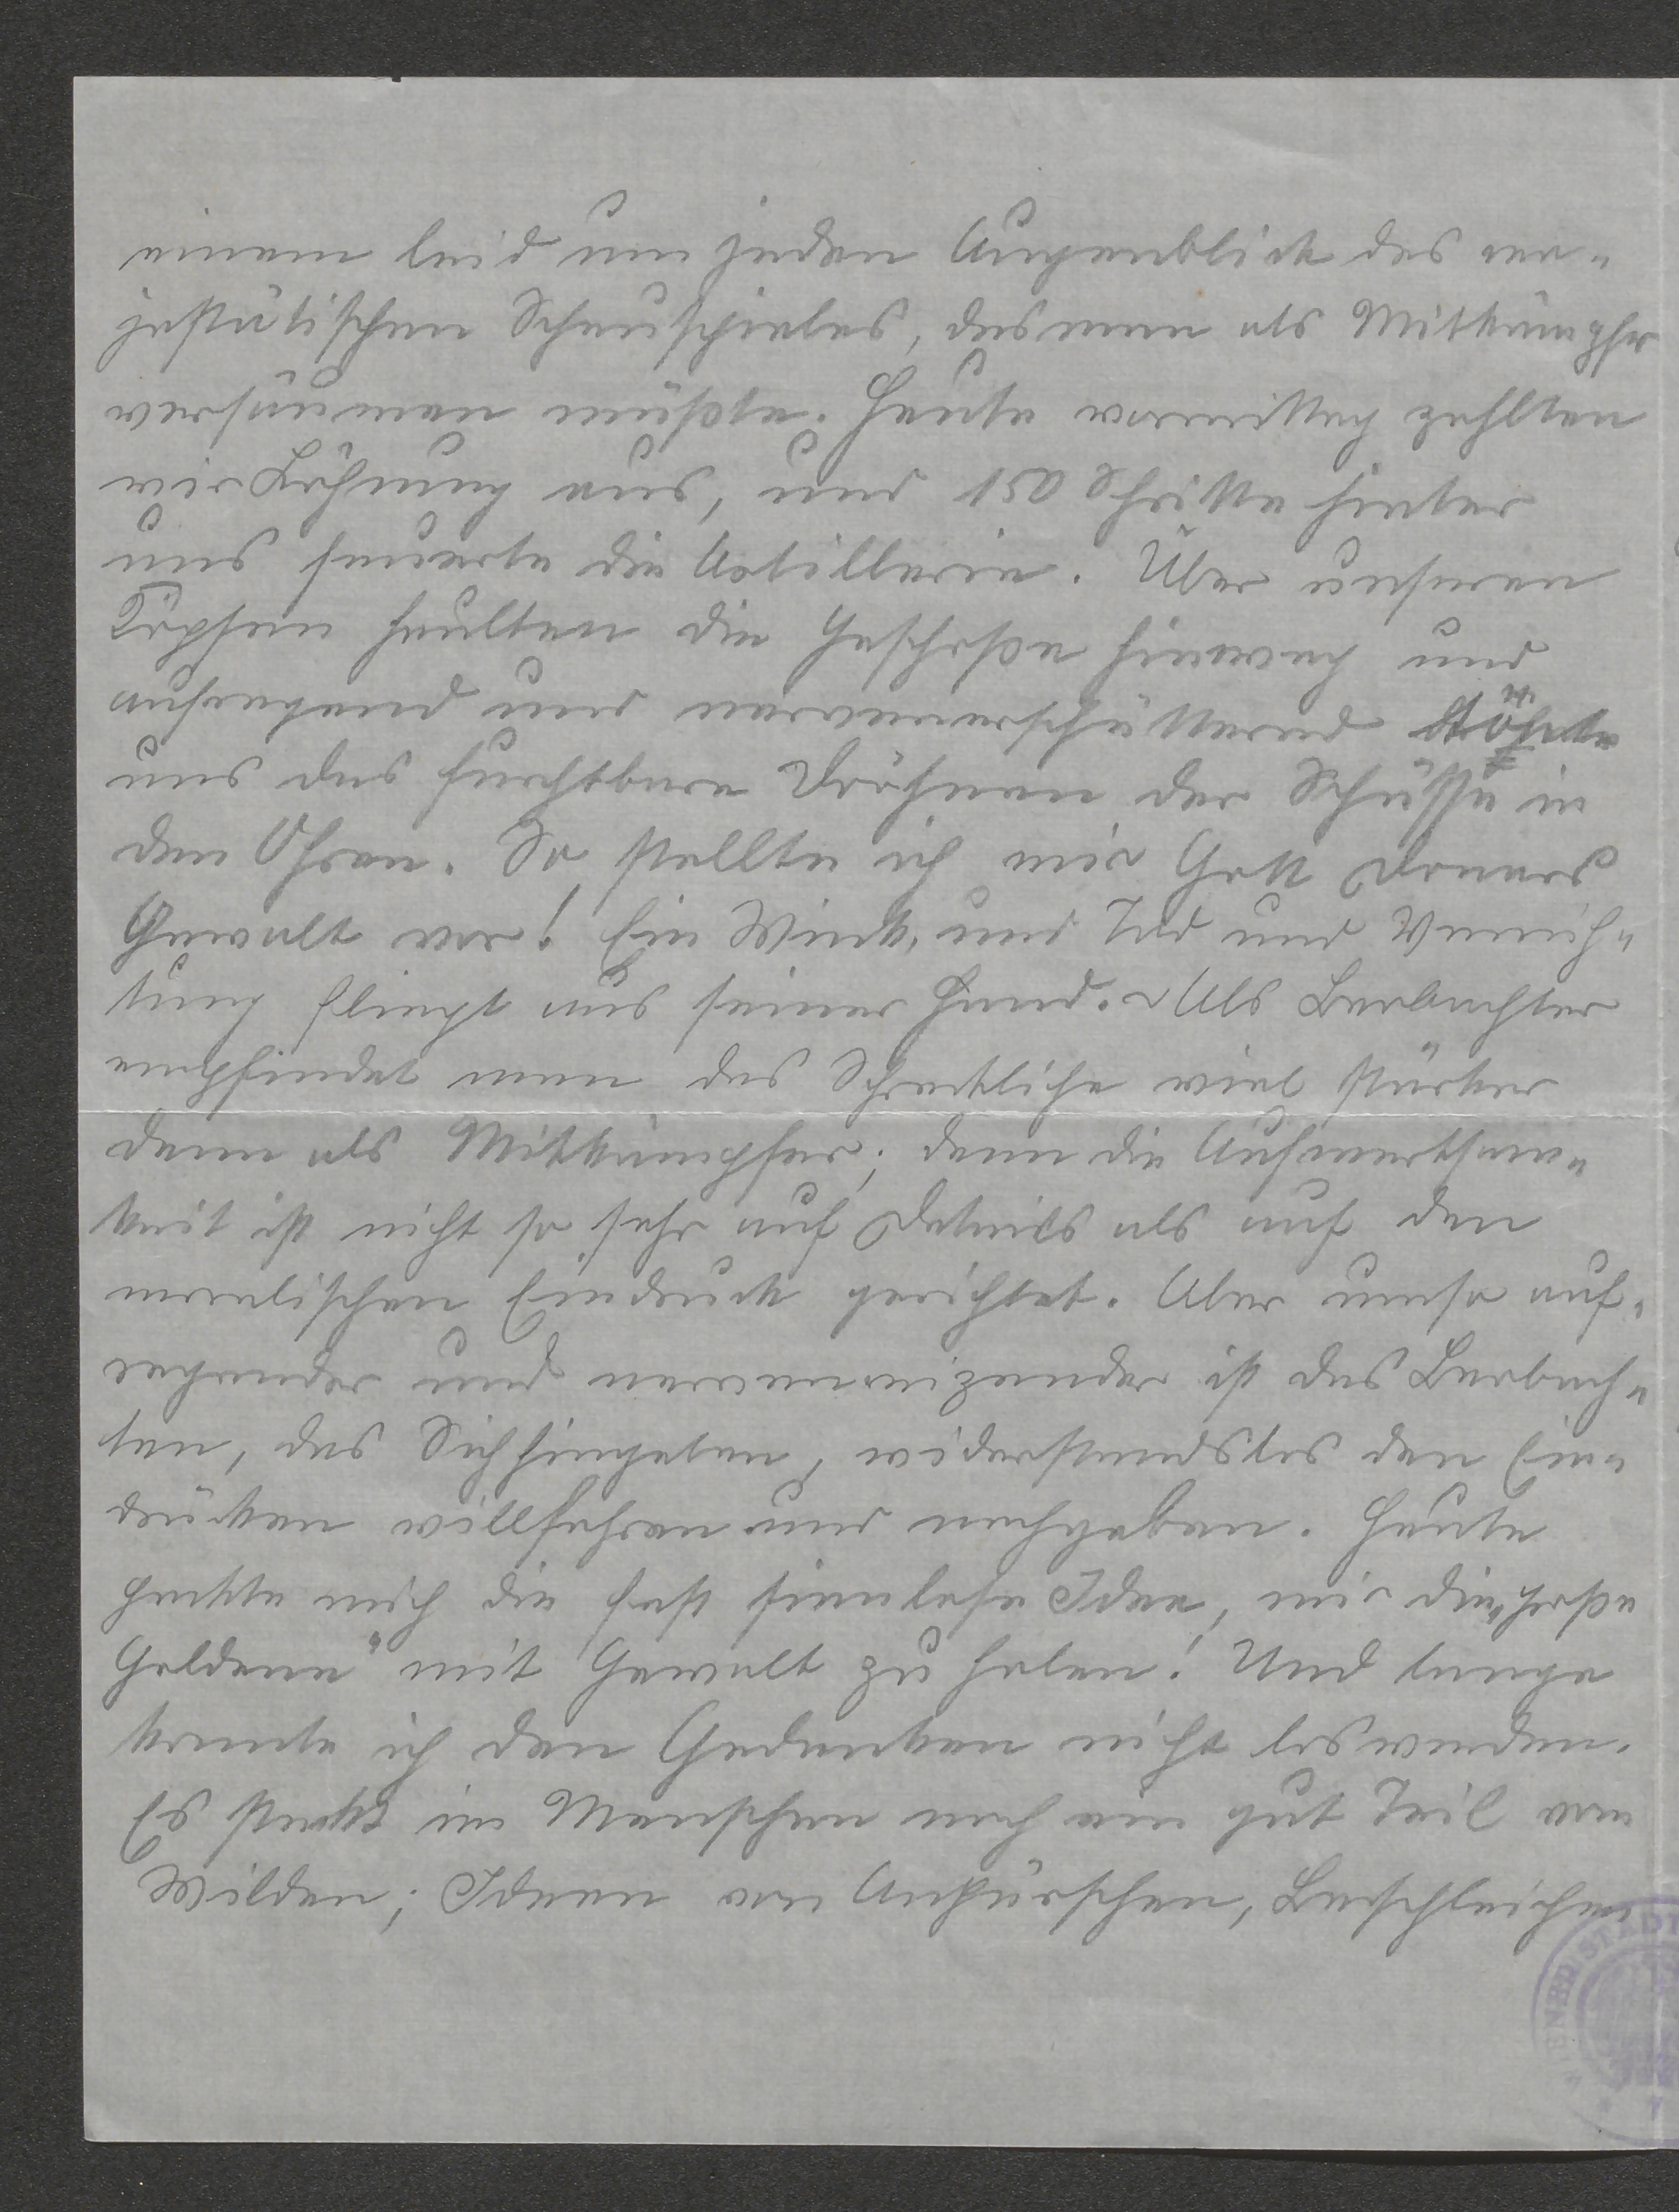 einem leid um jeden Augenblick des ma-
jestätischen Schauspieles, das man als Mitkämpfer
versäumen müßte. Heute vormittag zahlten
wir Löhnung aus, und 150 Schritte hinter
uns feuerte die Artillerie. Über unseren
Köpfen heulten die Geschoße hinweg und
aufregend und nervenerschütternd
uns das furchtbare Dröhnen der Schüsse in
den Ohren. So stellte ich mir Gott Donars
Gewalt vor! Ein Wink, und Tod und Vernich-
tung fliegt aus seiner Hand. Als Beobachter
empfindet man das Schreckliche viel stärker
denn als Mitkämpfer; denn die Aufmerksam-
keit ist nicht so sehr auf Details als auf den
moralischen Eindruck gerichtet. Aber umso auf-
regender und nervenreizender ist das Beobach-
ten, das Sichhingeben, widerstandslos den Ein-
drücken willfahren und nachgeben. Heute
packte mich die fast sinnlose Idee, mir die „große
Goldene" mit Gewalt zu holen! Und lange
konnte ich den Gedanken nicht loswerden.
Es steckt im Menschen noch ein gut Teil vom
Wilden; Ideen von Anpürschen, Beschleichen